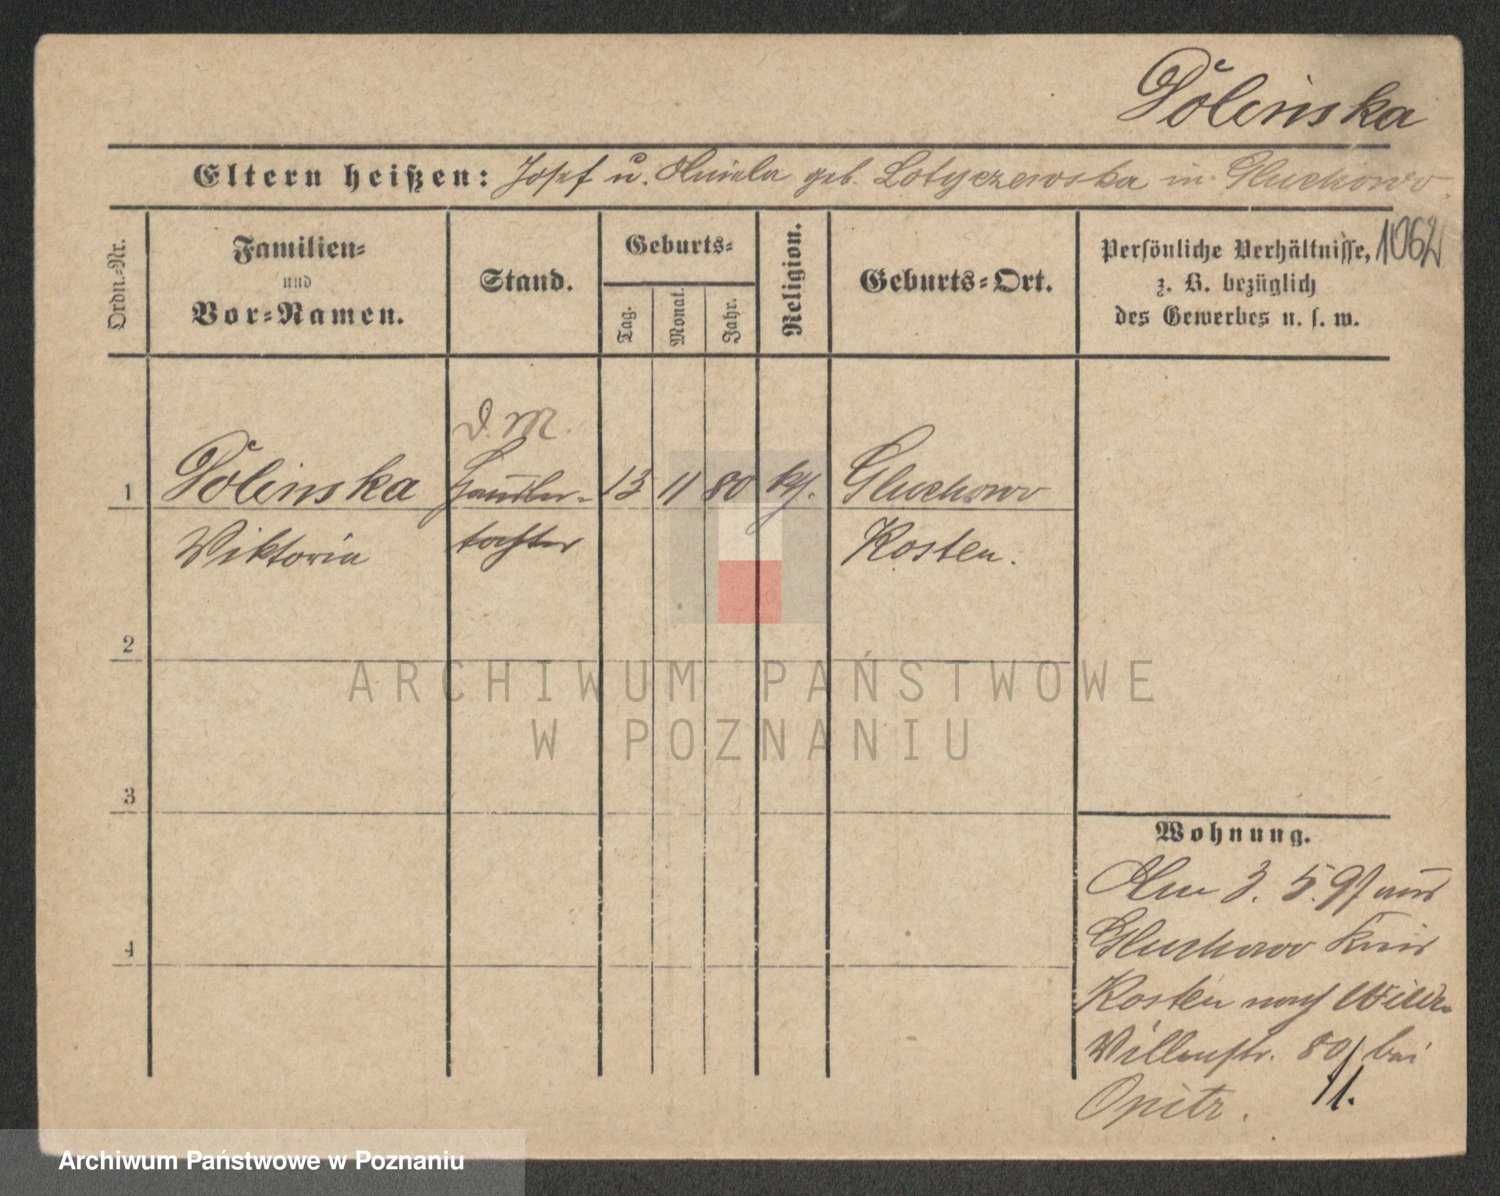 Polinska
Eltern heißen: Josef u. Aniela geb. Lotyczewska in Gluchowo
Ordn.-Nr.
Familien-
und
Vor-Namen.
Stand.
Geburts-
Tag.
Monat.
Jahr.
Religion.
Geburts-Ort.
Persönliche Verhältnisse,
z. B. bezüglich
des Gewerbes u. s. w.
1062
D. M.
1 Polinska Händler- 13 11 80 kth. Gluchowo
Viktoria tochter Kosten.
2
3
4
Wohnung.
Am 3. 5. 97 aus
Gluchowo Kreis
Kosten nach
Villenstr. 80 bei
Opitz. 11.
ARCHIWUM PAŃSTWOWE
W POZNANIU
Archiwum Państwowe w Poznaniu